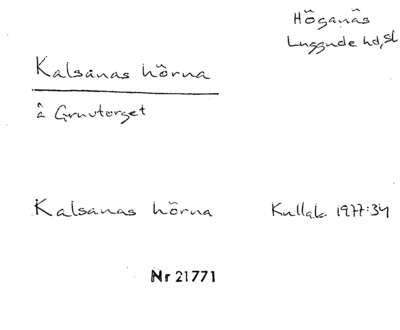 Höganäs
Luggude hd, sk
Kalsanas hörna
å Gruvtorget
Kalsanas hörna
Kullab. 1977:34
Nr 21771